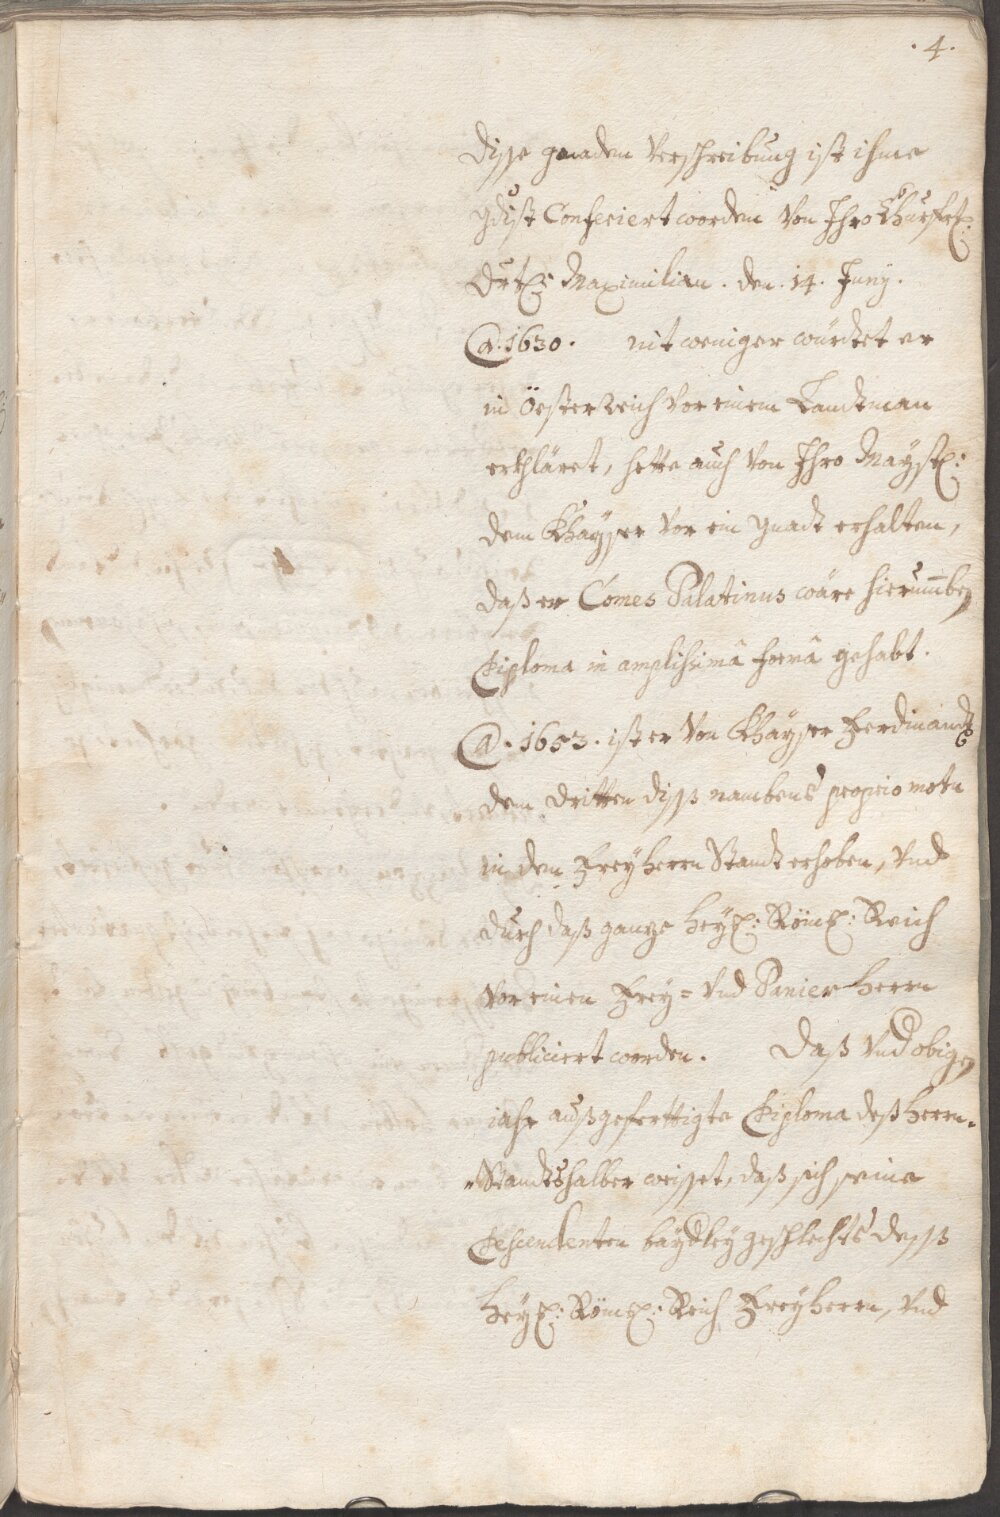 . 4 .
Disse gnaden Verschreibung ist ihme
gdist Conferiert worden Von Ihro Churfrt:
Drt: Maximilian . den . 14 . Juny .
A: 1630 . nit weniger würdtet er
in Öesterreich Vor einem Landtman
erkhläret, hette auch Von Ihro Mayst:
dem Khayser Vor ein gnadt erhalten,
daß er Comes Palatinus wäre hierumben
Diploma in amplissimâ formâ gehabt .
A: 1653 . ist er Von Khayser Ferdinandt
dem dritten diss nambens proprio motu
in den Freyherrn Standt erhoben, Vnd
durch daß gantze heyl: Röml: Reich
Vor einen Frey= Vnd Panier herrn
publiciert worden . Daß Vnd obigen
iahr außgeferttigte Diploma deß herrn=
=Standtshalber weisset, daß sich seine
Descendenten baydley geschlechts dess
heyl: Röml: Reich Freyherrn, Vnd